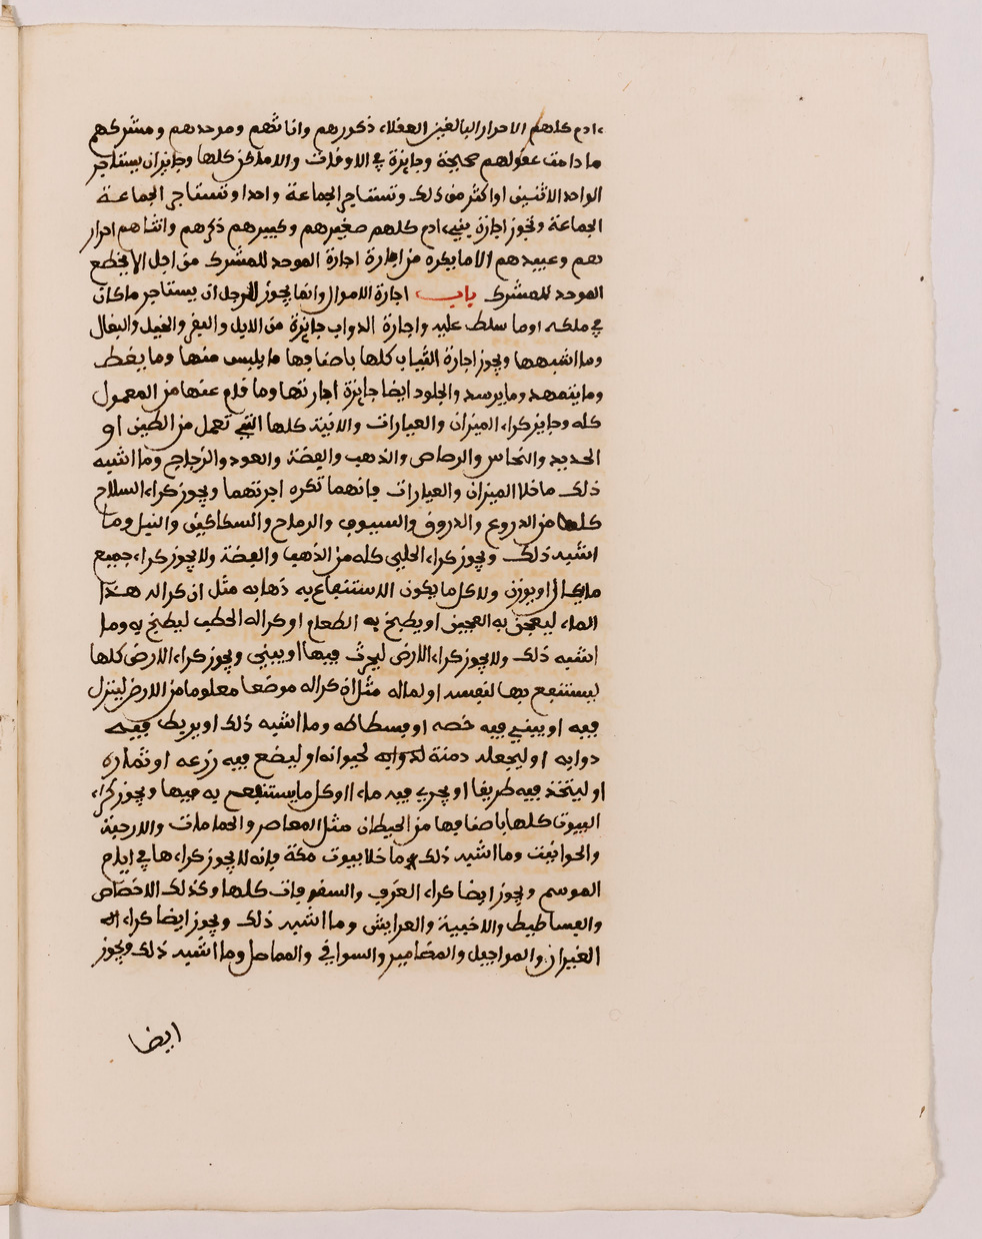 ءادم كلهم الاحرار البالغين العقلاء ذكورهم واناثهم وموحدهم ومشركهم
ما دامت عقولهم صحيحة وجايزة في الاوقات والاماكن كلها وجايز ان يستاجر
الواحد الاثنين او اكثر من ذلك وتستاجر الجماعة واحدا وتستاجر الجماعة
الجماعة وتجوز اجارة بني ءادم كلهم صغيرهم وكبيرهم ذكرهم وانثاهم احرار
هم وعبيدهم الا ما يكره من اجارة اجارة الموحد للمشرك من اجل الا يخضع
الموحد للمشرك باب اجارة الاموال وانما يجوز للرجل ان يستاجر ما كان
في ملكه او ما سلط عليه واجارة الدواب جايزة من الابل والبقر والخيل والبغال
وما اشبهها ويجوز اجارة الثياب كلها باصنافها ما يلبس منها وما يغطى
وما يتمهد وما يوسد والجلود ايضا جايزة اجارتها وما قدم عنها من المعمول
كله وجايز كراء الميزان والعيارات والانية كلها التي تعمل من الطين او
الحديد والنحاس والرصاص والذهب والفضة والعود والزجاج وما اشبه
ذلك ما خلا الميزان والعيارات فانهما تكره اجرتهما ويجوز كراء السلاح
كلها من الدروع والدروق والسيوف والرماح والسكاكين والنبل وما
اشبه ذلك ويجوز كراء الحلي كله من الذهب والفضة ولا يجوز كراء جميع
ما يكال او يوزن ولا كل ما يكون الاستنفاع به ذهابه مثل ان كرا له هذا
الماء ليعجن به العجين او يطبخ به الطعام او كرا له الحطب ليطبخ به وما
اشبه ذلك ولا يجوز كراء الارض ليحرث فيها او يبني ويجوز كراء الارض كلها
ليستنفع بها لنفسه او لماله مثل ان كرا له موضعا معلوما من الارض لينزل
فيه او يبني فيه خصه او فسطاطه وما اشبه ذلك او يربط فيه
دوابه او ليجعله دمنة لدوابه لحيوانه او ليضع فيه زرعه او ثماره
او ليتخذ فيه طريقا او يجري فيه ماء او كل ما يستنفع به فيها ويجوز كراء
البيوت كلها باصنافها من الحيطان مثل المعاصر والحمامات والارحية
والحوانيت وما اشبه ذلك ما خلا بيوت مكة فانه لا يجوز كراءها في ايام
الموسم ويجوز ايضا كراء الغرف والسقوفات كلها وكذلك الاخصاص
والفساطيط والاخبية والعرايش وما اشبه ذلك ويجوز ايضا كراء
الغيران والمواجيل والمضامير والسواقي والمماصل وما اشبه ذلك ويجوز
ايضا